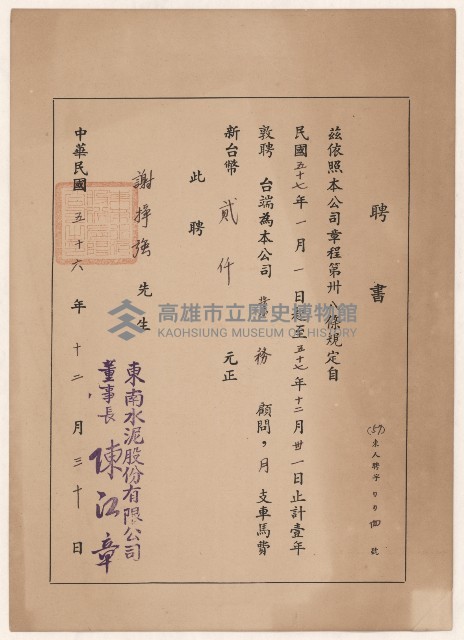 聘書
(57)東人聘字第 號
茲依照本公司章程第卅八條規定自
民國五十七年一月一日起至五十七年十二月卅一日止計壹年
敦聘 台端為本公司業務顧問，月支車馬費
新台幣貳仟元正
此聘
謝掙強先生
東南水泥股份有限公司
董事長 陳江章
中華民國五十六年十二月三十日
高雄市立歷史博物館
KAOHSIUNG MUSEUM OF HISTORY